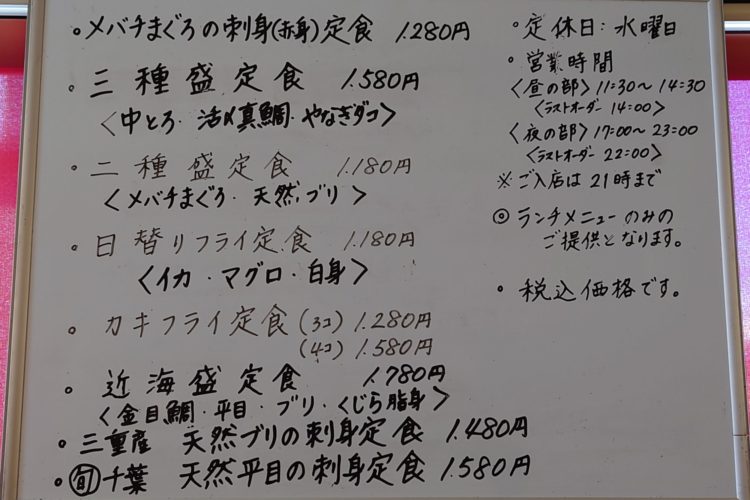 ・メバチまぐろの刺身(赤身)定食 1.280円
・三種盛定食 1.580円
<中とろ・活〆真鯛・やなぎダコ>
・二種盛定食 1.180円
<メバチまぐろ・天然.ブリ>
・日替りフライ定食 1.180円
<イカ・マグロ・白身>
・カキフライ定食(3コ) 1.280円
(4コ) 1.580円
・近海盛定食 1.780円
<金目鯛・平目・ブリ・くじら脂身>
・三重産 天然ブリの刺身定食 1.480円
・旬千葉 天然平目の刺身定食 1.580円
・定休日:水曜日
・営業時間
<昼の部> 11:30〜14:30
<ラストオーダー 14:00>
<夜の部> 17:00〜23:00
<ラストオーダー 22:00>
※ご入店は21時まで
◎ランチメニューのみの
ご提供となります。
・税込価格です。